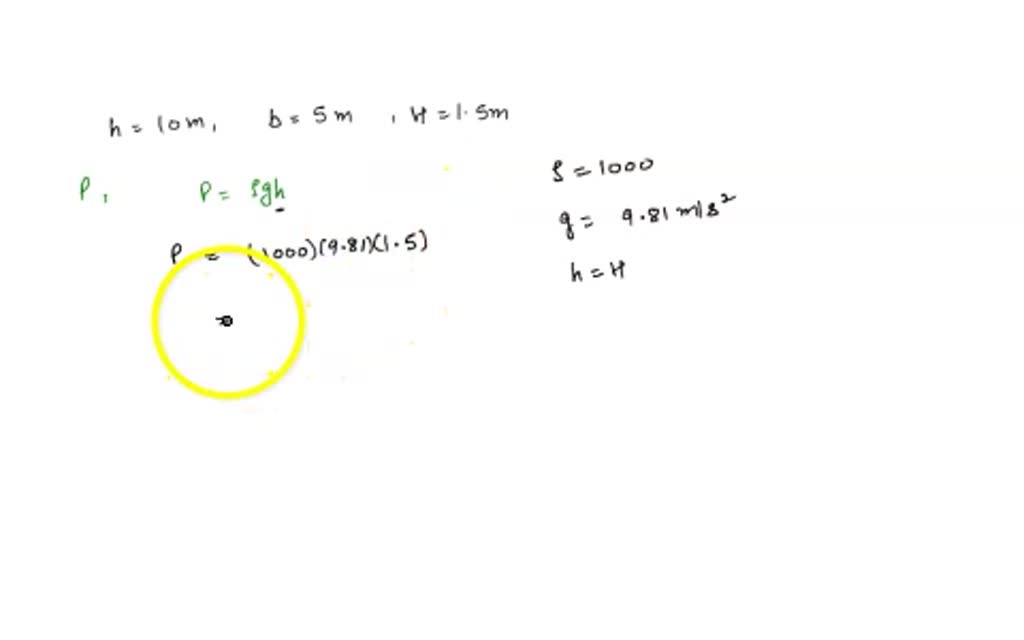 h = 10m, b = 5m , H = 1.5m
P, P = ρgh
P = (1000)(9.81)(1.5)
ρ = 1000
g = 9.81 m/s²
h = H